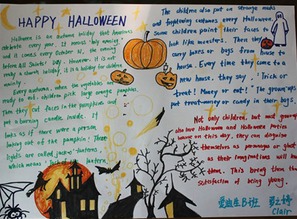 HAPPY HALLOWEEN
Halloween is an autumn holiday that Americans
celebrate every year. It means "holy evening,"
and it comes every October 31, the evening
before All Saints' Day. However, it is not
really a church holiday, it is a holiday for children
mainly.
Every autumn, when the vegetables are
ready to eat, children pick large orange pumpkins.
Then they cut faces in the pumpkins and
put a burning candle inside. It
looks as if there were a person
looking out of the pumpkin! These
lights are called jack-o'-lanterns,
which means
The children also put on strange masks
and frightening costumes every Halloween.
Some children paint their faces to
look like monsters. Then they
carry boxes or bags from house to
house. Every time they come to a
new house, they say, "Trick or
treat! Money or eat!" The grown-ups
put treat-money or candy in their bags.
Not only children, but most grown-ups
also love Halloween and Halloween parties
because on this day, they can disguise
themselves as personages or ghosts
as their imaginations will lead
them. This bring them the
satisfaction of being young.
Clair